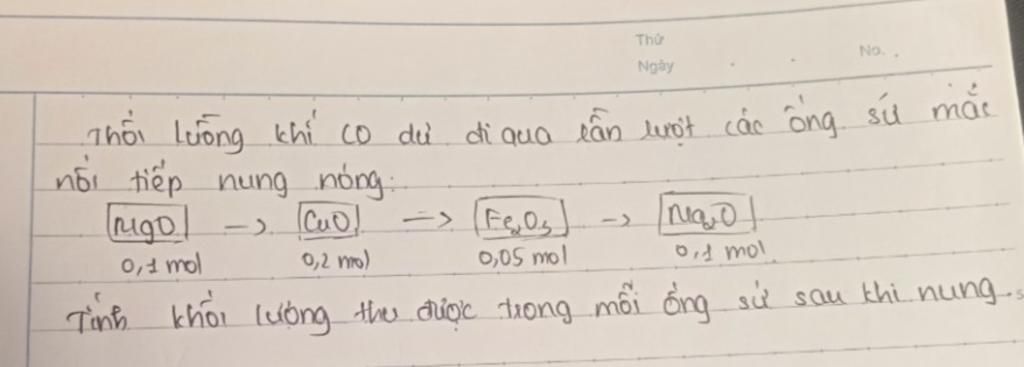 Thứ
Ngày . . No. .
Thổi luồng khí CO dư đi qua lần lượt các ống sứ mắc
nối tiếp nung nóng:
MgO -> CuO -> Fe2O3 -> Na2O
0,1 mol 0,2 mol 0,05 mol 0,1 mol
Tính khối lượng thu được trong mỗi ống sứ sau khi nung.